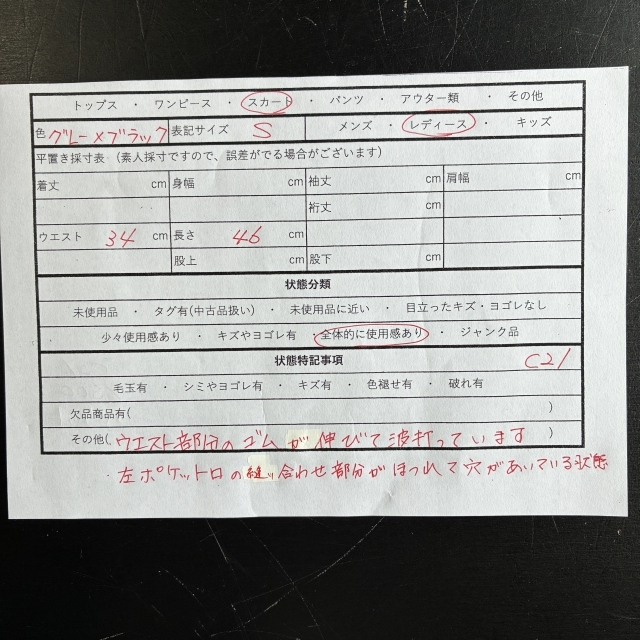 トップス ・ ワンピース ・ スカート ・ パンツ ・ アウター類 ・ その他
色 グレー×ブラック 表記サイズ S メンズ ・ レディース ・ キッズ
平置き採寸表（素人採寸ですので、誤差がでる場合がございます）
着丈 cm 身幅 cm 袖丈 cm 肩幅 cm
裄丈 cm
ウエスト 34 cm 長さ 46 cm
股上 cm 股下 cm
状態分類
未使用品 ・ タグ有(中古品扱い) ・ 未使用品に近い ・ 目立ったキズ・ヨゴレなし
少々使用感あり ・ キズやヨゴレ有 ・ 全体的に使用感あり ・ ジャンク品
状態特記事項 C21
毛玉有 ・ シミやヨゴレ有 ・ キズ有 ・ 色褪せ有 ・ 破れ有
欠品商品有( )
その他( ウエスト部分のゴムが伸びて波打っています )
・左ポケット口の縫い合わせ部分がほつれて穴があいている状態